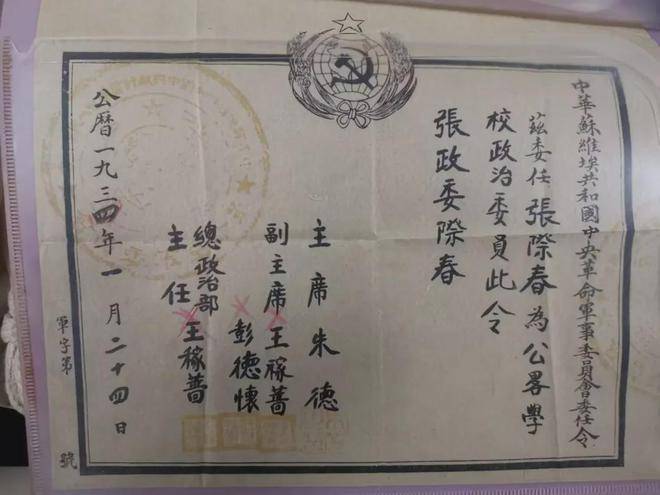 中華蘇維埃共和國中央革命軍事委員會委任令
茲委任張際春為公畧學
校政治委員此令
張政委際春
主席朱德
副主席王稼薔
彭德懷
總政治部
主任王稼薔
公曆一九三四年一月二十四日
軍字第 號